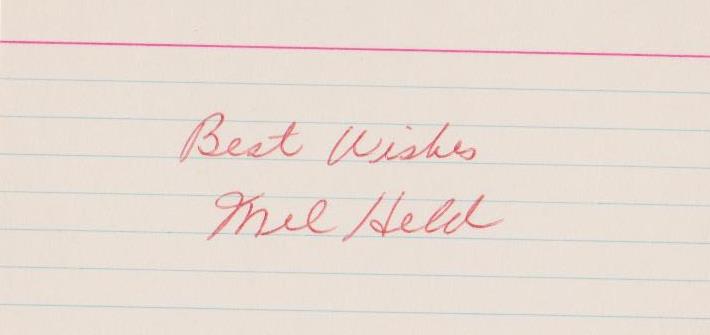 Best Wishes
Mel Held